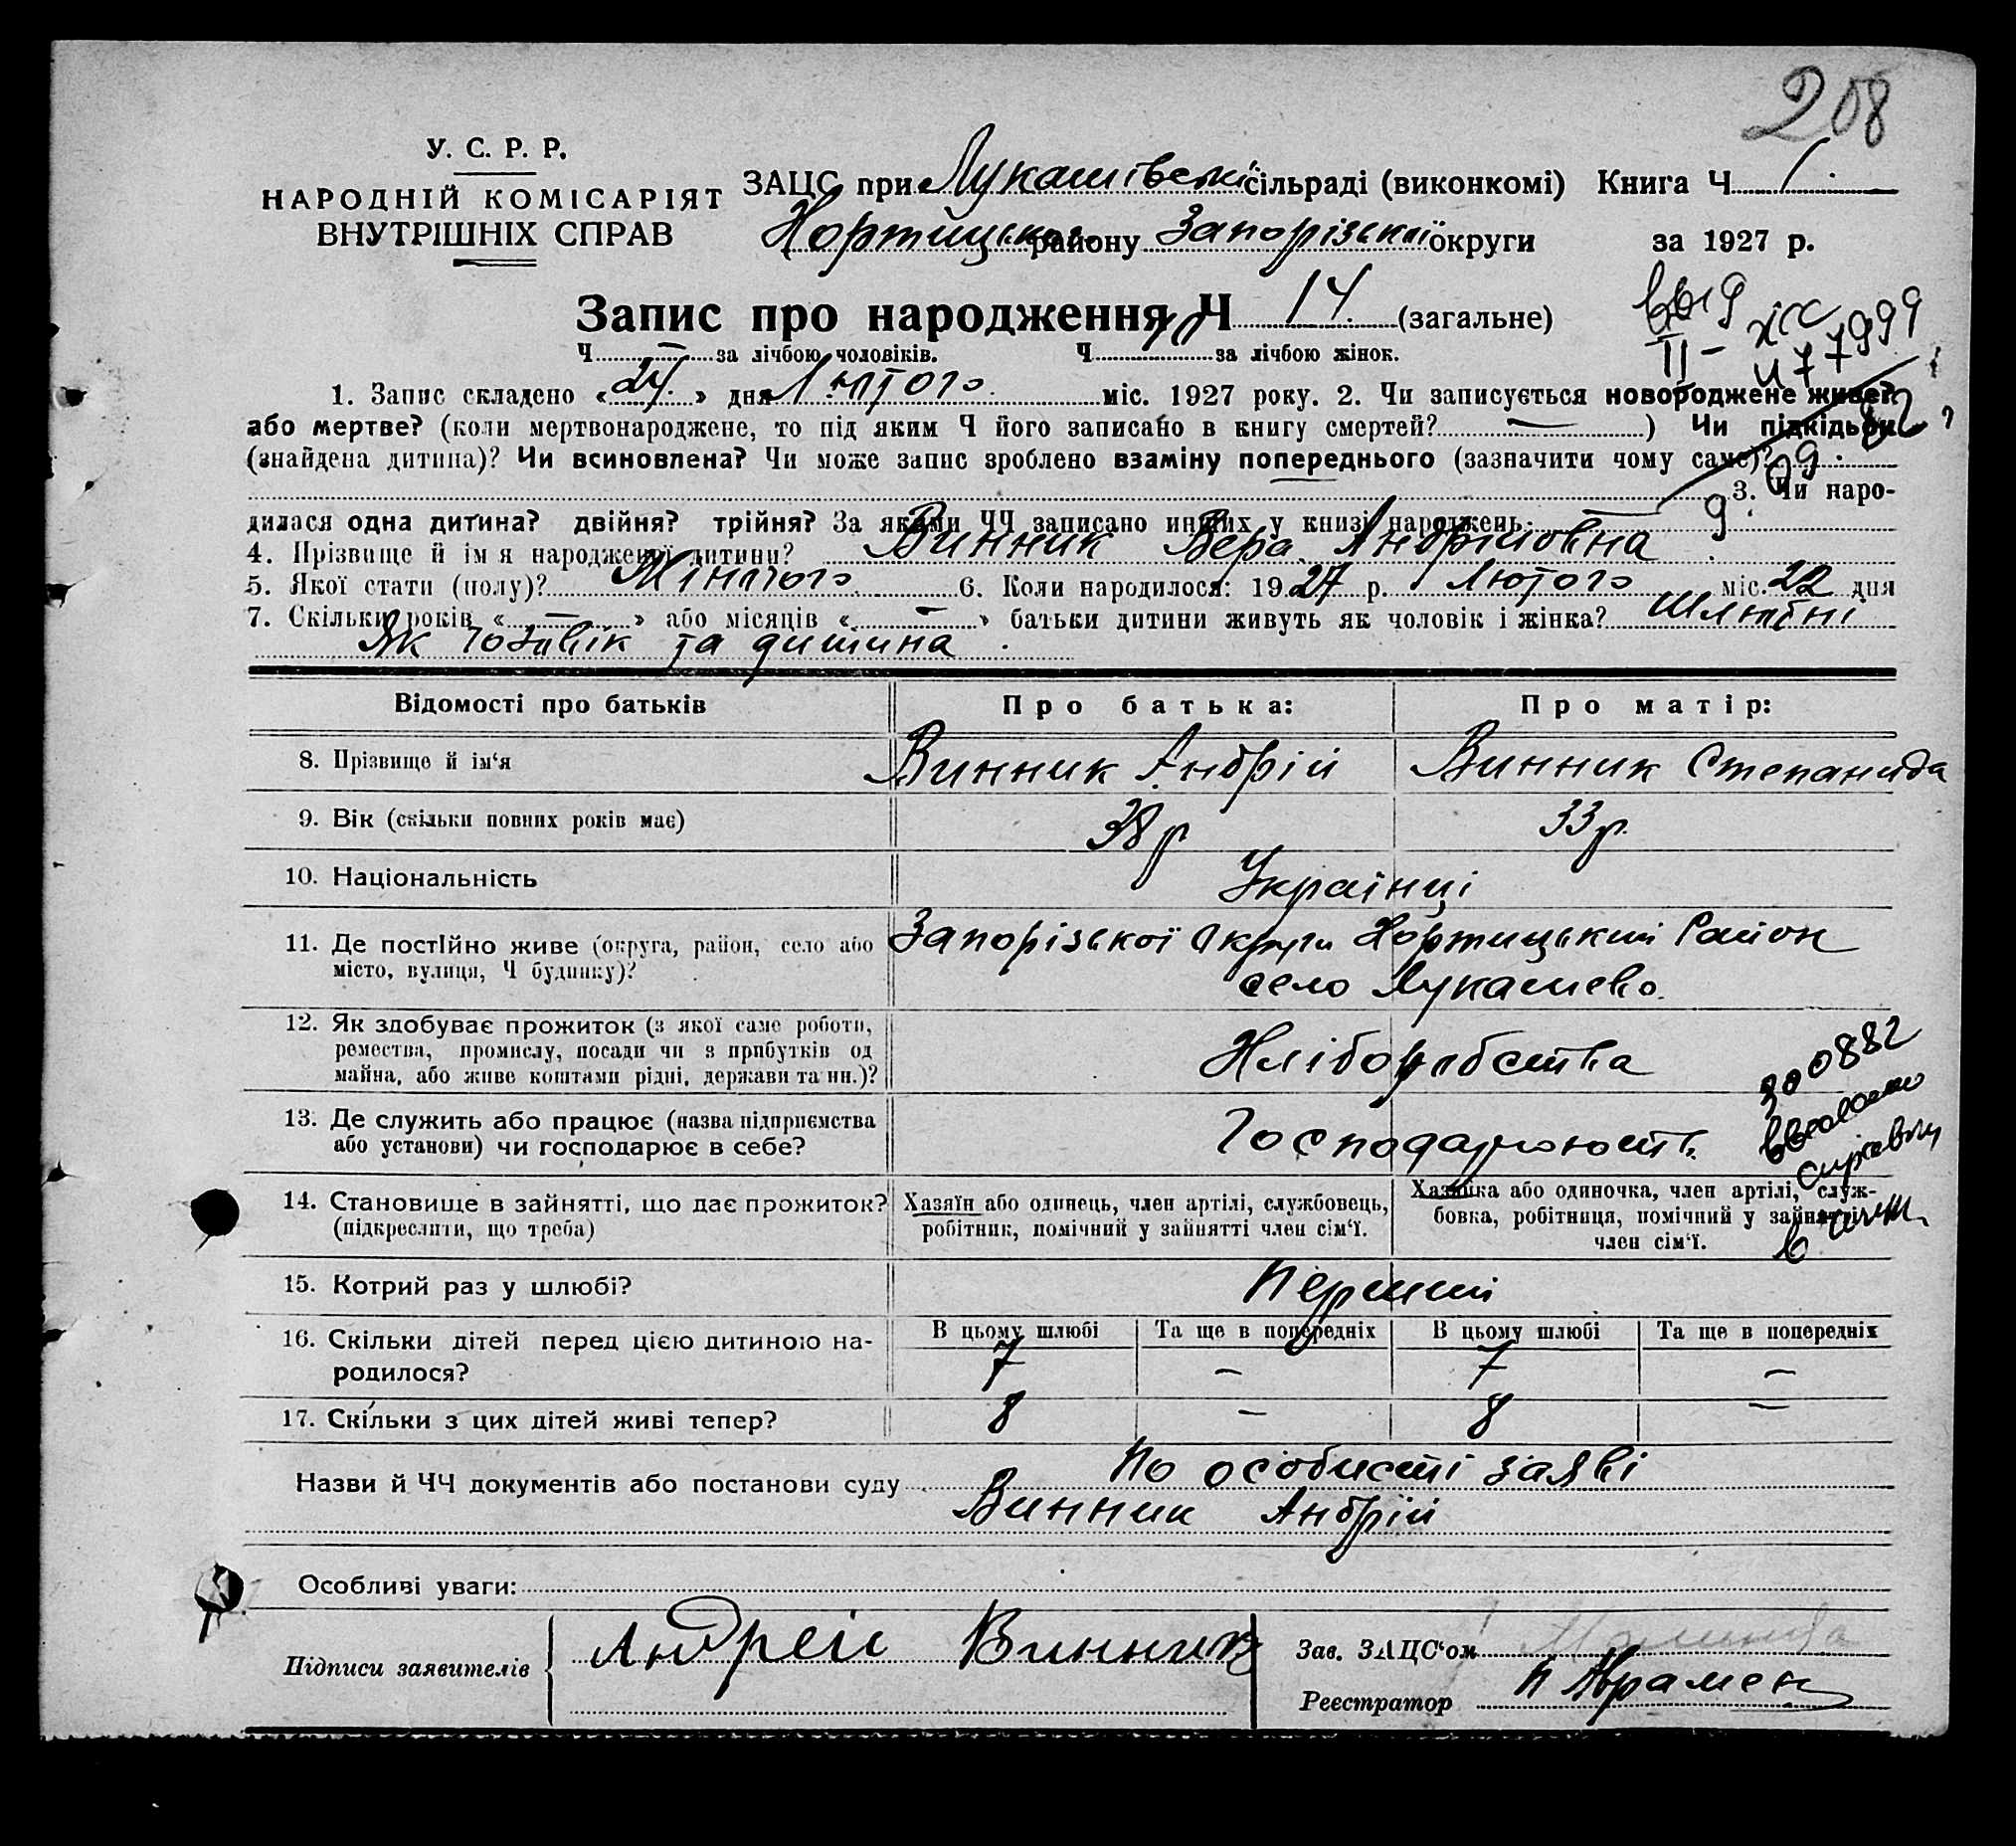 208
У. С. Р. Р.
НАРОДНІЙ КОМІСАРІЯТ
ВНУТРІШНІХ СПРАВ
ЗАЦС при Лукашівські сільраді (виконкомі) Книга Ч 1.
Хортицького району Запорізької округи за 1927 р.
Запис про народження Ч 14. (загальне)
Ч — за лічбою чоловіків. Ч за лічбою жінок.
выд
II –
477999
1. Запис складено «24» дня Лютого міс. 1927 року. 2. Чи записується новороджене живе?
або мертве? (коли мертвонароджене, то під яким Ч його записано в книгу смертей? — ) Чи підкідьок?
(знайдена дитина)? Чи всиновлена? Чи може запис зроблено взаміну попереднього (зазначити чому саме)?
3. Чи наро-
дилася одна дитина? двійня? трійня? За якими ЧЧ записано инших у книзі народжень —
4. Прізвище й імя народженої дитини? Винник Вера Андріиовна
5. Якої стати (полу)? Жіночого 6. Коли народилося: 1927 р. Лютого міс. 22 дня
7. Скільки років « — » або місяців « — » батьки дитини живуть як чоловік і жінка?
Як чоловік та дитина.
Відомості про батьків
Про батька:
Про матір:
8. Прізвище й ім‘я
Винник Андрій
Винник Степанида
9. Вік (скільки повних років має)
38 р
33 р.
10. Національність
Українці
11. Де постійно живе (округа, район, село або
місто, вулиця, Ч будинку)?
Запорізької Округи Хортицький Район
село Лукашево.
12. Як здобуває прожиток (з якої саме роботи,
ремества, промислу, посади чи з прибутків од
майна, або живе коштами рідні, держави та ин.)?
Хліборобства
300882
13. Де служить або працює (назва підприємства
або установи) чи господарює в себе?
Господарюють
14. Становище в зайнятті, що дає прожиток?
(підкреслити, що треба)
Хазяїн або одинець, член артілі, службовець,
робітник, помічний у зайнятті член сім‘ї.
Хазяйка або одиночка, член артілі, служ-
бовка, робітниця, помічний у зайнятті
член сім‘ї.
15. Котрий раз у шлюбі?
Перший
16. Скільки дітей перед цією дитиною на-
родилося?
В цьому шлюбі
Та ще в попередніх
В цьому шлюбі
Та ще в попередніх
7 — 7 —
17. Скільки з цих дітей живі тепер?
8 — 8 —
Назви й ЧЧ документів або постанови суду По особисті заяві
Винник Андрій
Особливі уваги:
Підписи заявителів
Андрей Винник
Зав. ЗАЦС‘ом
Реєстратор П Авраменко